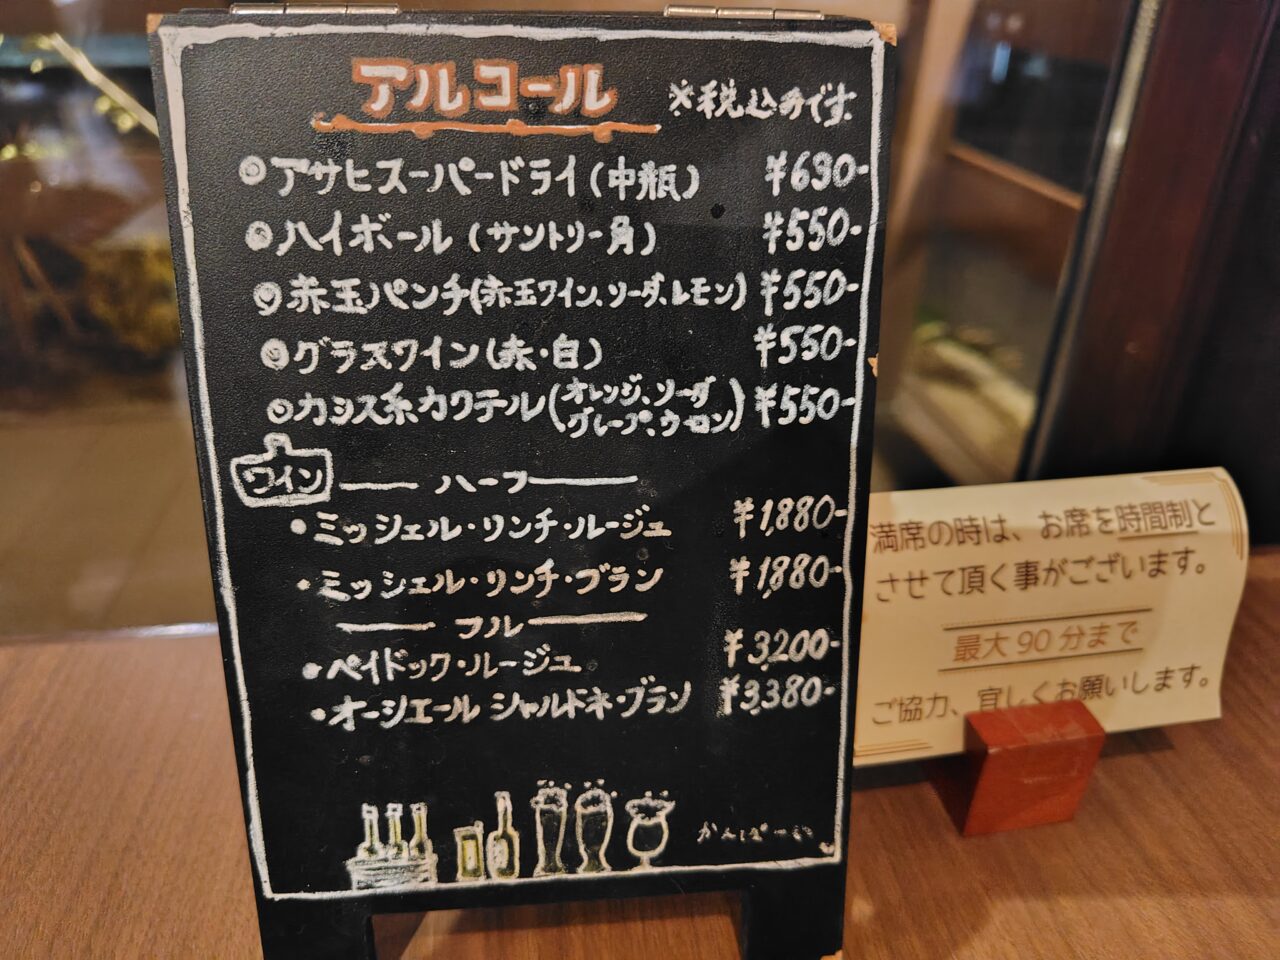 アルコール ※税込みです
◎アサヒスーパードライ(中瓶) ¥690-
◎ハイボール(サントリー角) ¥550-
◎赤玉パンチ(赤玉ワイン、ソーダ、レモン) ¥550-
◎グラスワイン(赤・白) ¥550-
◎カシス系カクテル(オレンジ、ソーダ
グレープ、ウーロン) ¥550-
ワイン ―― ハーフ ――
・ミッシェル・リンチ・ルージュ ¥1,880-
・ミッシェル・リンチ・ブラン ¥1,880-
―― フル ――
・ペイドック・ルージュ ¥3,200-
・オーシエール シャルドネ・ブラン ¥3,380-
かんぱーい
満席の時は、お席を時間制と
させて頂く事がございます。
最大90分まで
ご協力、宜しくお願いします。